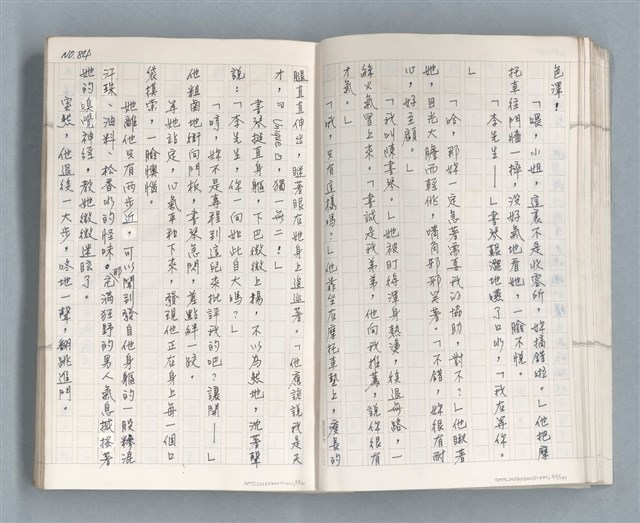 色澤！
「喂，小姐，這裏不是收容所，妳搞錯啦。」他把摩
托車往門牆一擰，沒好氣地看她，一臉不悅。
「李先生——」書琴艱澀地嚥了口水，「我在等你。
」
「哈，那妳一定急著需要我的協助，對不？」他瞅著
她，目光大膽而輕佻，嘴角邪邪笑著。「不錯，妳很有耐
心，好主顧。」
「我叫陳書琴。」她被盯得渾身熱燙，後退無路，一
絲火氣冒上來。「書誠是我弟弟，他向我推薦，說你很有
才氣。」
「哦，只有這樣嗎？」他靠坐在摩托車墊上，瘦長的
NO. 84
腿直直伸出，瞇著眼在她身上逡巡著。「他應該說我是天
才，『Unique』，獨一無二！」
書琴挺直身軀，下巴微微上揚，不以為然地，沈著聲
說：「李先生，你一向如此自大嗎？」
「哼，妳不是專程到這兒來批評我的吧？讓開——」
他粗鹵地衝向門板，書琴急閃，差點絆一跤。
等她站定，心氣平和下來，發現他正在身上每一個口
袋摸索，一臉懊惱。
她離他只有兩步近，可以聞到發自他身軀的一股糝混
汗珠、油料、松香水的怪味。那充滿狂野的男人氣息撼搖著
她的嗅覺神經，教她微微迷眩了。
突然，他退後一大步，咚地一聲，翻跳進門。